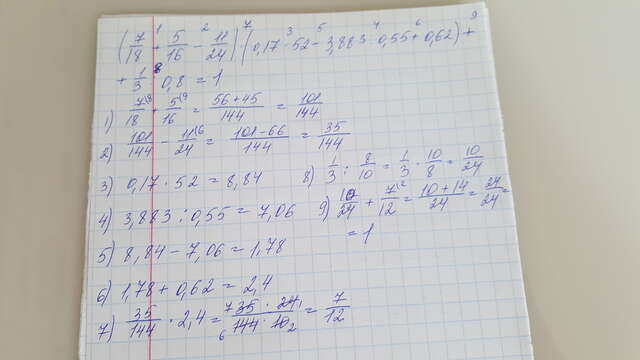 (7/18 + 5/16 − 11/24) · (0,17 · 52 − 3,883 : 0,55 + 0,62) +
+ 1/3 : 0,8 = 1
1) 7/18 + 5/16 = 56+45/144 = 101/144
2) 101/144 − 11/24 = 101−66/144 = 35/144
3) 0,17 · 52 = 8,84
4) 3,883 : 0,55 = 7,06
5) 8,84 − 7,06 = 1,78
6) 1,78 + 0,62 = 2,4
7) 35/144 · 2,4 = 35 · 24/144 · 10 = 7/12
8) 1/3 : 8/10 = 1/3 · 10/8 = 10/24
9) 10/24 + 7/12 = 10+14/24 = 24/24 =
= 1